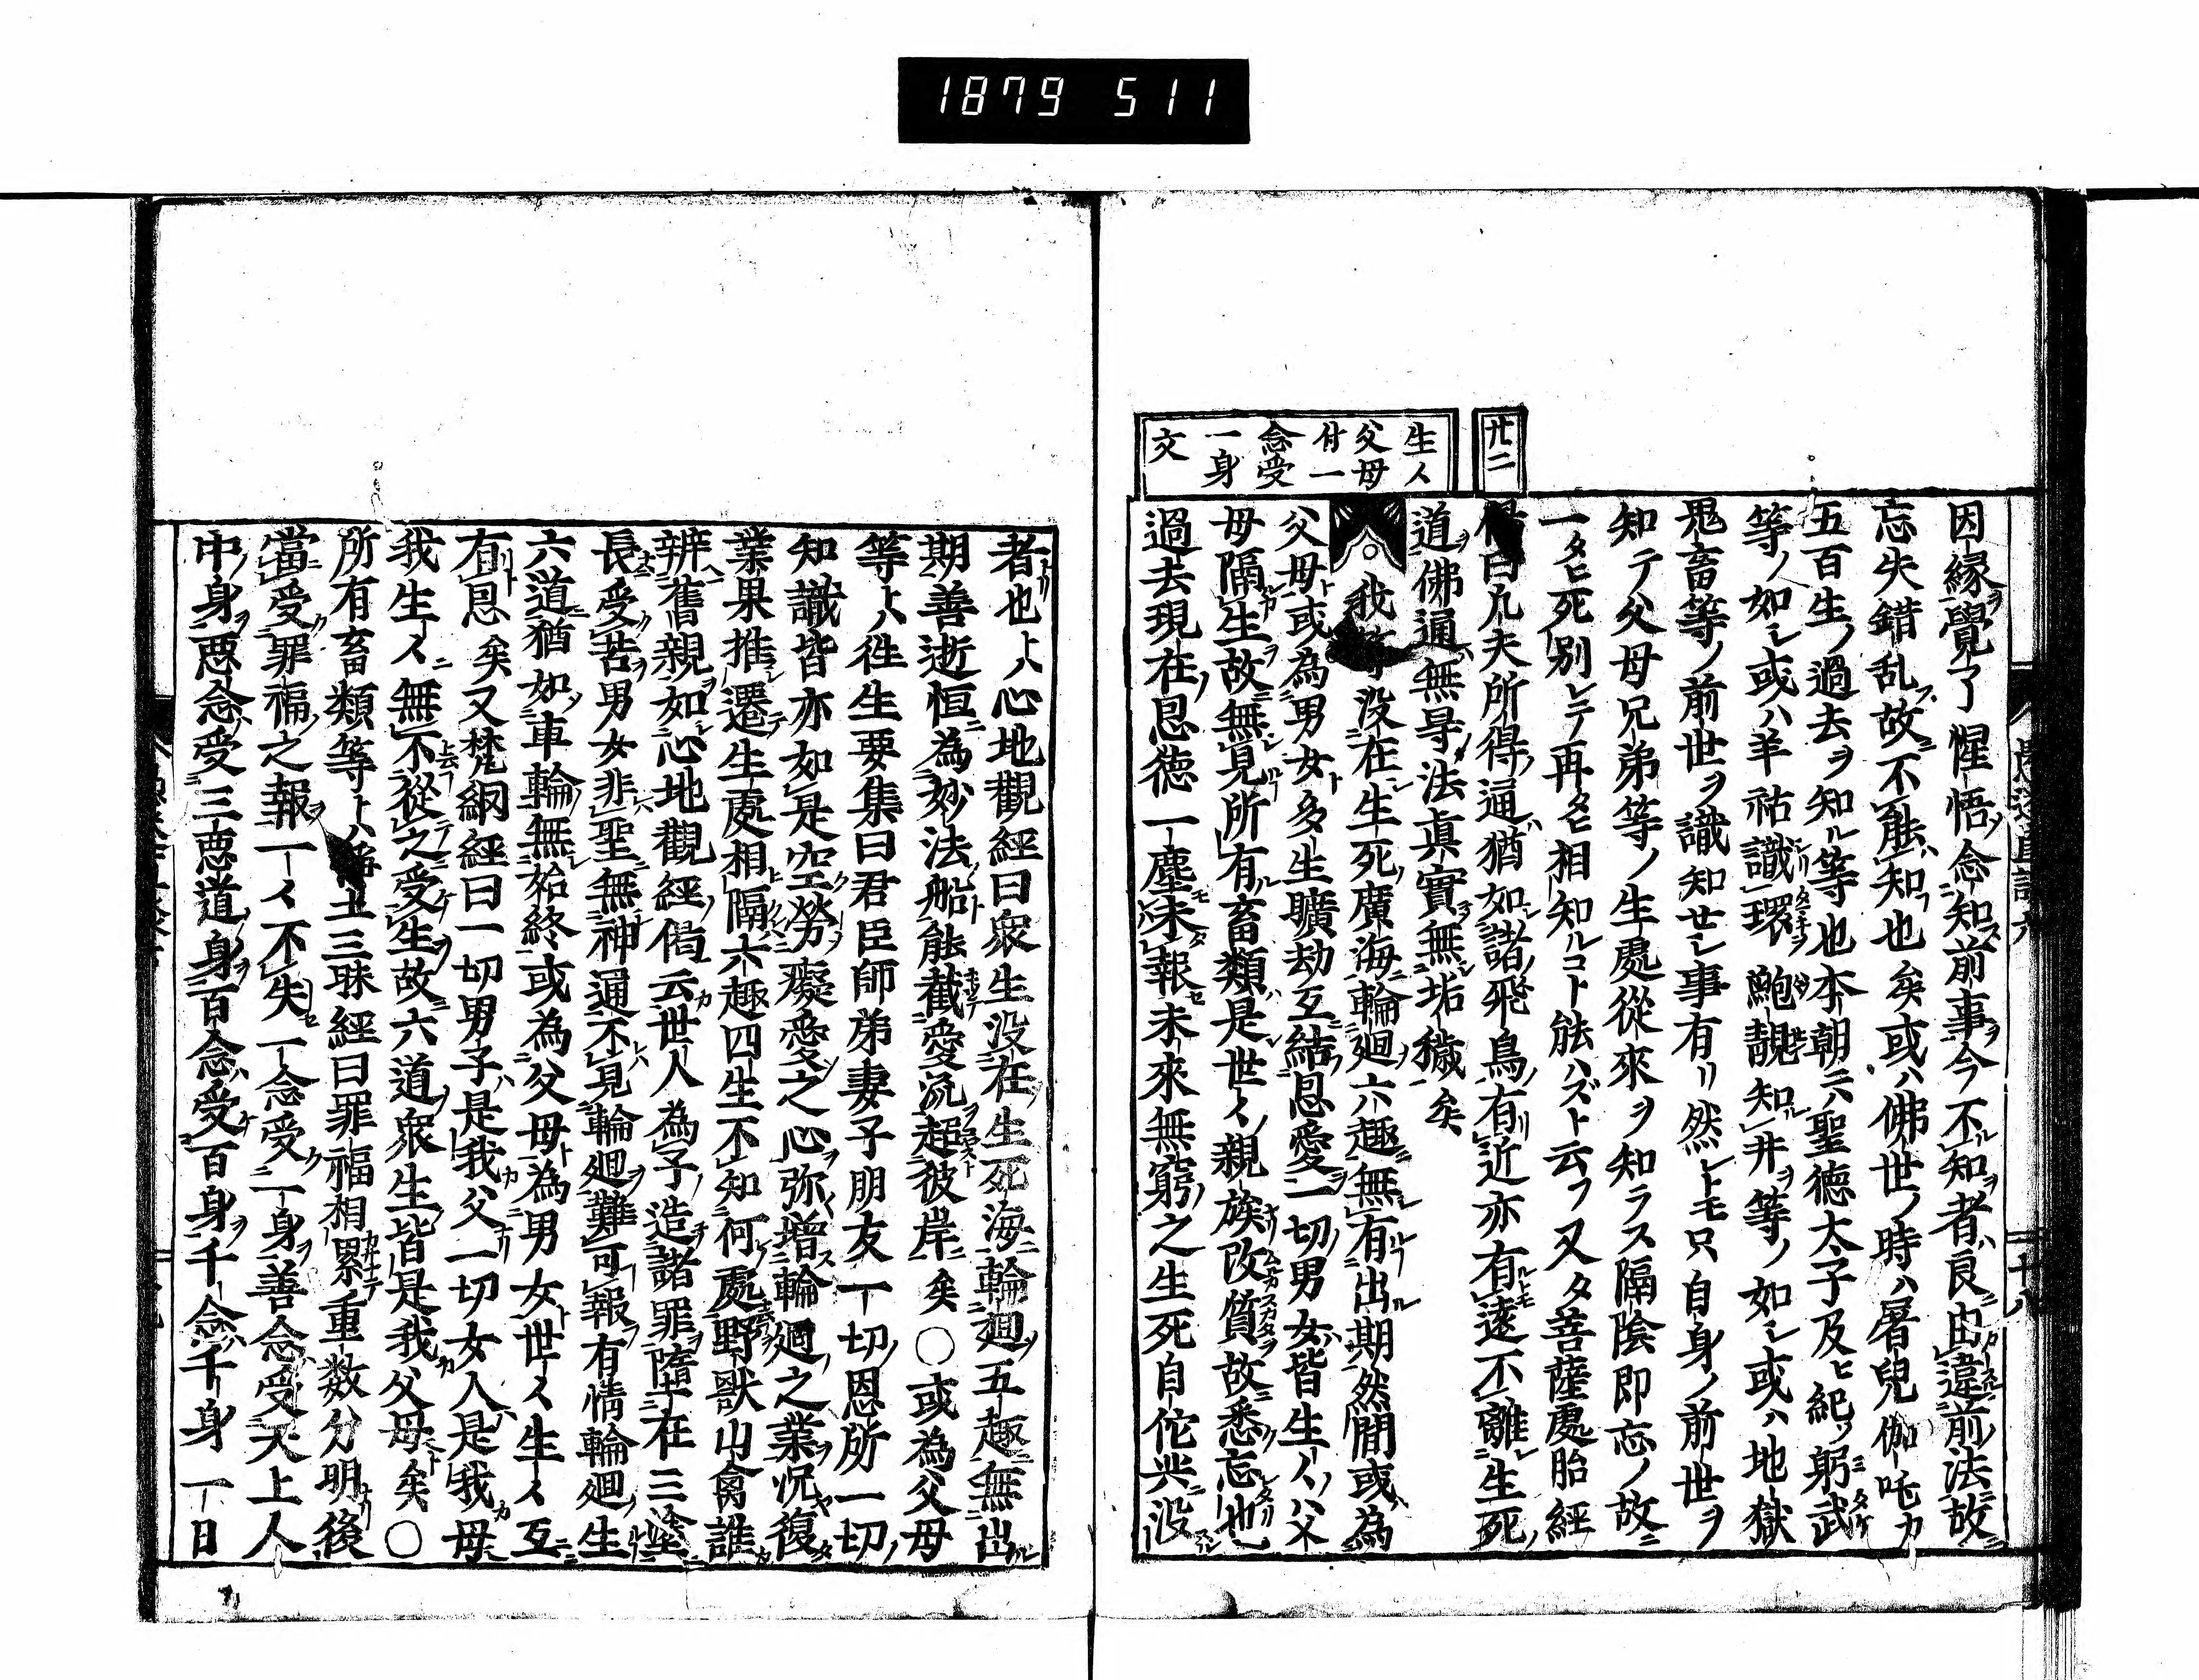 1879 511
廿二
生々
父母
付一
念受
一身
文
因縁覺了惺悟念知前事今不知者良由違前法故
忘失錯乱故不能知也矣或ハ佛世ノ時ハ屠兒伽吒カ
五百生ノ過去ヲ知ル等也本朝ニハ聖德太子及ヒ紀ノ躬武
等ノ如シ或ハ羊祜識環鮑靚知井等ノ如シ或ハ地獄
鬼畜等ノ前世ヲ識知セシ事有リ然レトモ只自身ノ前世ヲ
知テ父母兄弟等ノ生處從來ヲ知ラス隔陰即忘ノ故ニ
一タヒ死別レテ再タヒ相知ルコト能ハズト云フ又タ菩薩處胎經
偈曰凡夫所得通猶如諸飛鳥有近亦有遠不離生死
道佛通無㝵法眞實無垢穢矣
○我等没在生死廣海輪廻六趣無有出期然間或為
父母或為男女多生曠劫互結恩愛一切男女皆生々ハ父
母隔生故無見所有畜類是世々親族改質故悉忘也
過去現在恩德一塵未報未來無窮之生死自佗共没
者也ト心地觀經曰衆生没在生死海輪廻五趣無出
期善逝恒為妙法船能截愛流超彼岸矣○或為父母
等ト八徃生要集曰君臣師弟妻子朋友一切恩所一切
知識皆亦如是空勞癡愛之心弥增輪廻之業况復
業果推遷生處相隔六趣四生不知何處野獸山禽誰
辨舊親如心地觀經偈云世人為子造諸罪墮在三塗
長受苦男女非聖無神通不見輪廻難可報有情輪廻生
六道猶如車輪無始終或為父母為男女世々生々互
有恩矣又梵網經曰一切男子是我父一切女人是我母
我生々無不從之受生故六道衆生皆是我父母矣○
所有畜類等ト八淨土三昧經曰罪福相累重数分明後
當受罪福之報一々不失一念受一身善念受天上人
中身悪念受三悪道身百念受百身千念千身一日